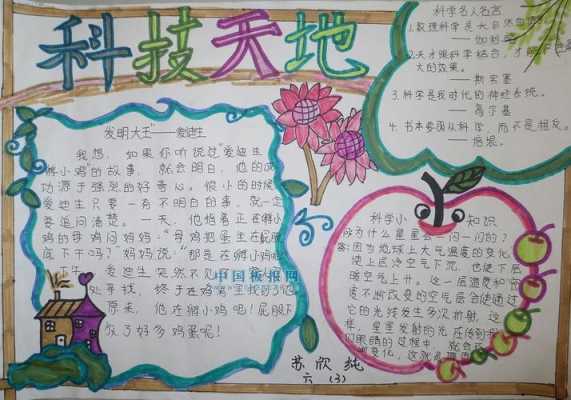 科技天地
科学名人名言
1.数理科学是大自然的语言。
——伽利略
2.天才跟科学结合，才能产生最
大的效果。
——斯宾塞
3.科学是我时代的神经系统。
——高尔基
4.书本要服从科学，而不是相反。
——培根。
发明大王"——爱迪生
我想，如果你听说过"爱迪生
孵小鸡"的故事，就会明白，他的成
功源于强烈的好奇心。很小的时候
爱迪生只要一有不明白的事，就一定
要追问清楚。一天，他指着正在孵小
鸡的母鸡问妈妈："母鸡把蛋坐在屁股
底下干吗？"妈妈说："那是在孵小鸡呢
下午，爱迪生突然不见了
处寻找，终于在鸡窝里找到了他
原来，他在孵小鸡呢！屁股下
放了好多鸡蛋呢！
中国板报网
科学小知识
为什么星星会一闪一闪的？
答：因为地球上大气温度的变化，
使上层冷空气下沉，也使下层
暖空气上升。这一层温度和密
度不断改变的空气层会使通过
它的光线发生多次折射，这
样，星星发射的光在传到我
们眼睛的过程中，就会
变化，这就
苏欣纯
六（3）